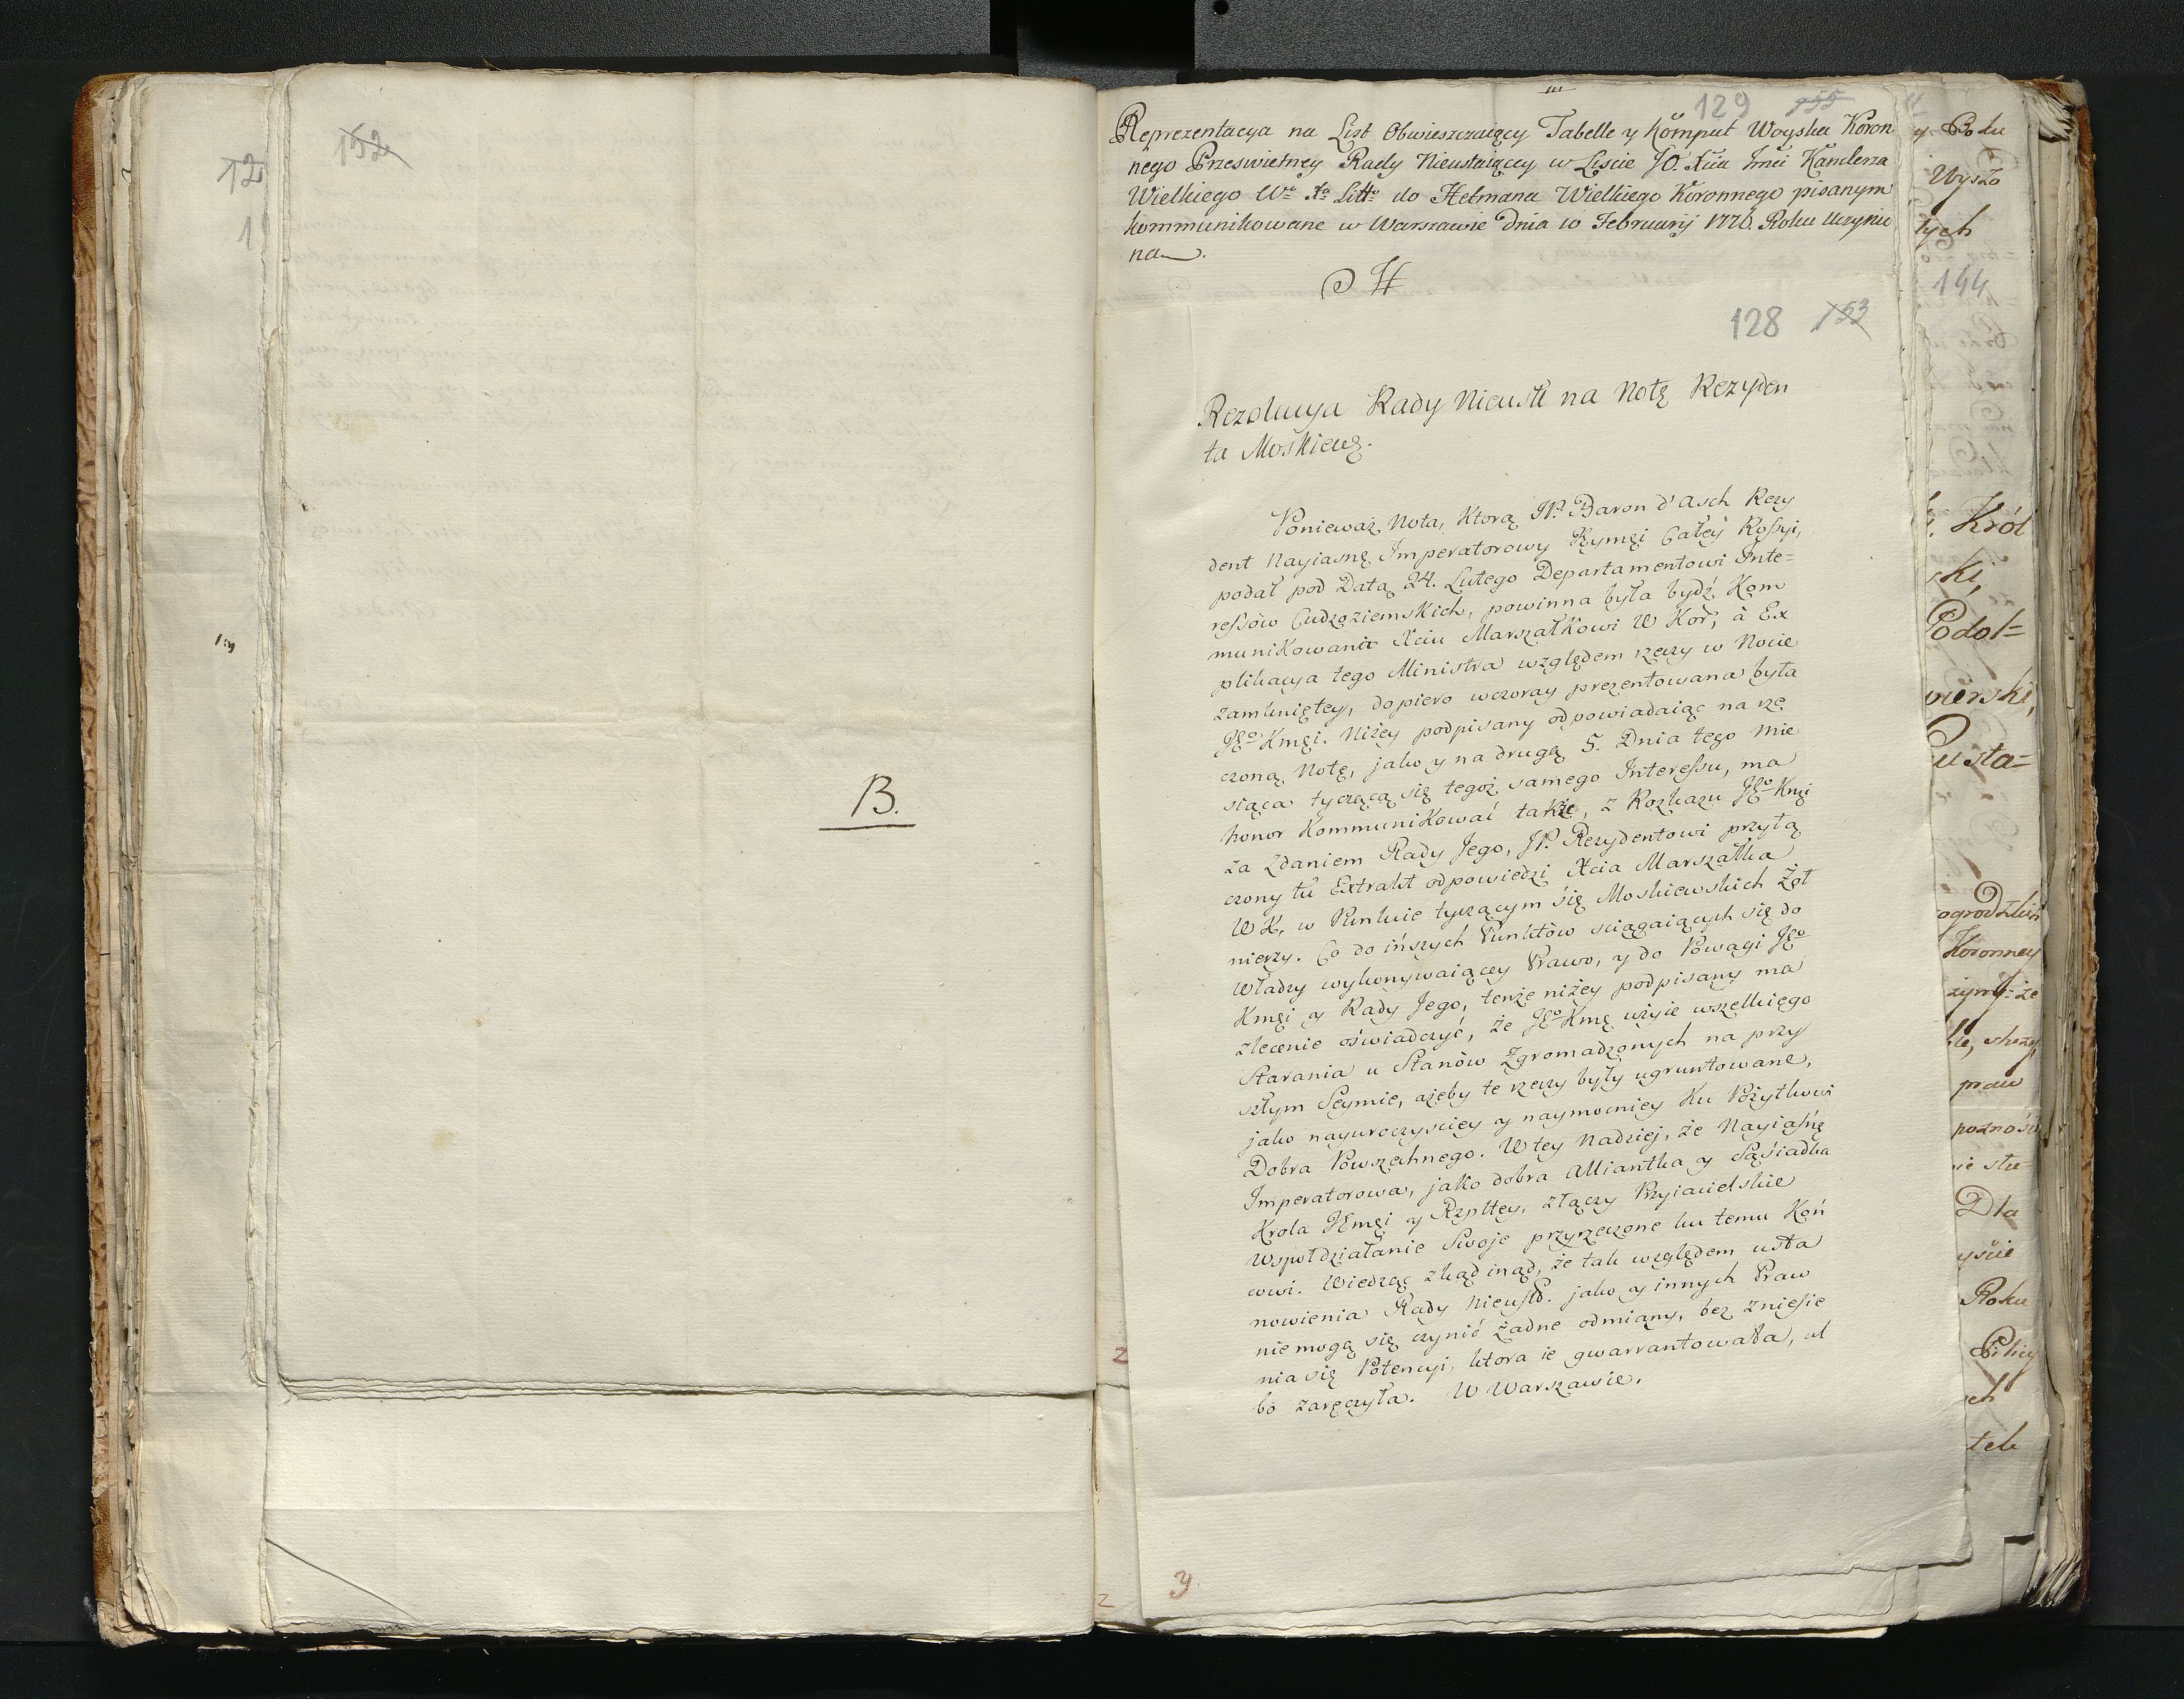 152
12
1
B.
129 155
Reprezentacya na List Obwieszczaiący Tabelle y Komput Woyska Koron
nego Przeswietney Rady Nieustaiącey w Liscie JO. Xcia Jmci Kanclerza
Wielkiego Wo Xa Litto do Hetmana Wielkiego Koronnego pisanym
kommunikowane w Warszawie Dnia 10 Februarij 1776. Roku Uczynio
na.
128 153
Rezolucya Rady Nieust na Notę Rezyden
ta Moskiewg.
Ponieważ Nota, Ktorą JP. Baron d'Asch Rezy
dent Nayiasnę Imperatorowy Jeymęi Całey Rossyi,
podał pod Datą 24. Lutego Departamentowi Inte=
ressów Cudzoziemskich, powinna była bydź Kom
munikowana Xciu Marszałkowi W Kor, à Ex
plikacya tego Ministra względem rzeczy w Nocie
zamkniętey, dopiero wczoray prezentowana była
JKo Kmęi. Niżey podpisany odpowiadaiąc na rze
czoną Notę, jako y na drugą 5. Dnia tego Mie
siąca tyczącą się tegoż samego Interessu, ma
honor Kommunikować także, z Rozkazu JKo Kmęi
za Zdaniem Rady Jego, JP. Rezydentowi przyłą
czony tu Extrakt odpowiedzi Xcia Marszałka
W K, w Punkcie tyczącym się Moskiewskich Żoł
nierzy. Co do inszych Punktów sciągaiących się do
Władzy wykonywaiącey Prawo, y do Powagi JKo
Kmęi y Rady Jego, tenże niżey podpisany ma
zlecenie oświadczyć, że JKo Kmę użyie wszelkiego
Starania u Stanów Zgromadzonych na przy
szłym Seymie, ażeby te rzeczy były ugruntowane,
jako nayuroczysciey y naymocniey Ku Pożytkowi
Dobra Powszechnego. W tey Nadziej, że Nayiasńę
Imperatorowa, jako dobra Alliantka y Sąsiadka
Krola JKmęi y Rzpltey, złączy Przyiacielskie
Wspołdziałanie Swoje przyrzeczone ku temu Koń
cowi. Wiedząc zkąd inąd, że tak względem usta
nowienia Rady Nieust. jako y innych Praw
nie mogą się czynić żadne odmiany, bez zniesie
nia się Potencyi, ktora ie gwarrantowała, al
bo zaręczyła. W Warszawie.
y Boku
Wyszo
tych
144
Król
ski,
Podol=
wierski,
Pusta=
Koronney
praw
Dla
yście
Roku
Pilicy
ch
tek
2
2
3